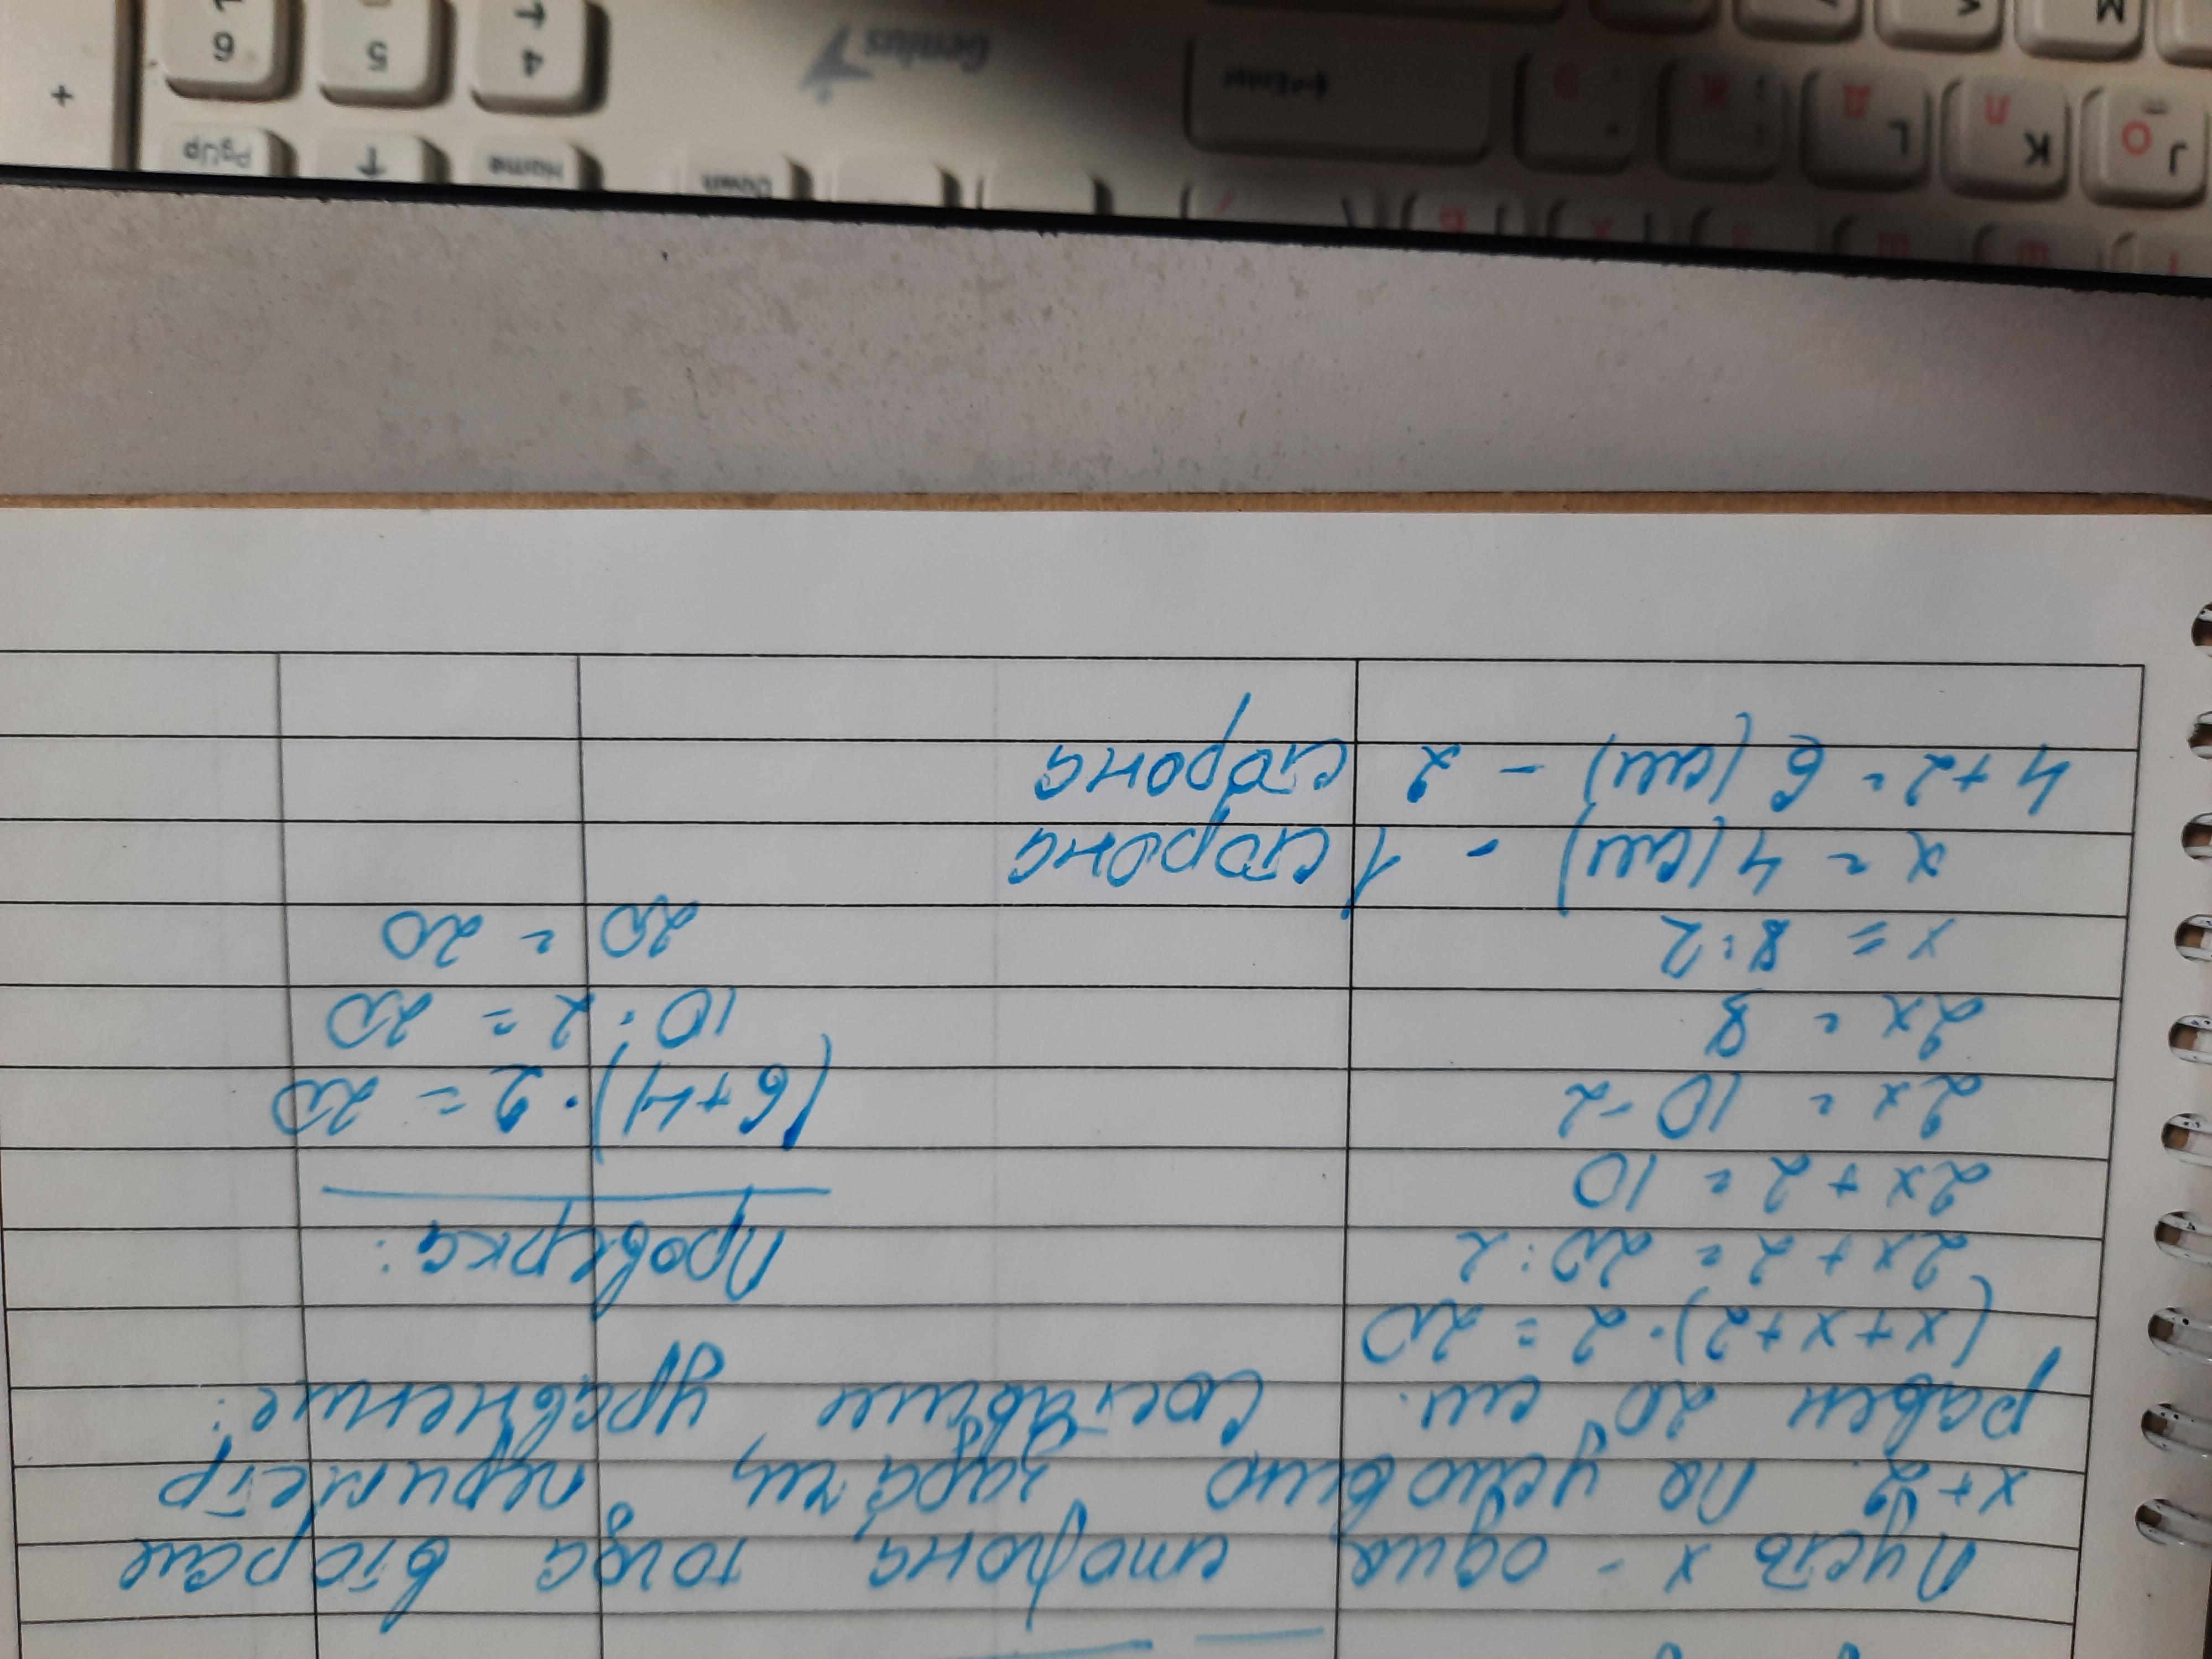 Пусть x - одна сторона, тогда вторая
x+2. По условию задачи, периметр
равен 20 см. Составим уравнение:
(x+x+2)·2=20
2x+2=20:2
2x+2=10
2x=10-2
2x=8
x=8:2
x=4(см) - 1 сторона
4+2=6(см) - 2 сторона
Проверка:
(6+4)·2=20
10·2=20
20=20
J О
K Л
L Д
Ж
Э
Enter
Genius
4
5
6
+
Home
PgUp
Down
M